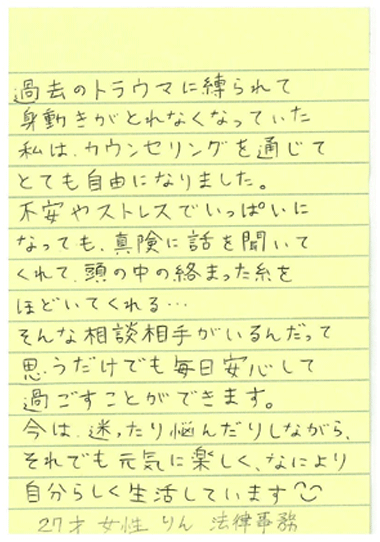 過去のトラウマに縛られて
身動きがとれなくなっていた
私は、カウンセリングを通じて
とても自由になりました。
不安やストレスでいっぱいに
なっても、真険に話を聞いて
くれて、頭の中の絡まった糸を
ほどいてくれる…
そんな相談相手がいるんだって
思うだけでも毎日安心して
過ごすことができます。
今は、迷ったり悩んだりしながら、
それでも元気に楽しく、なにより
自分らしく生活しています
27才 女性 りん 法律事務